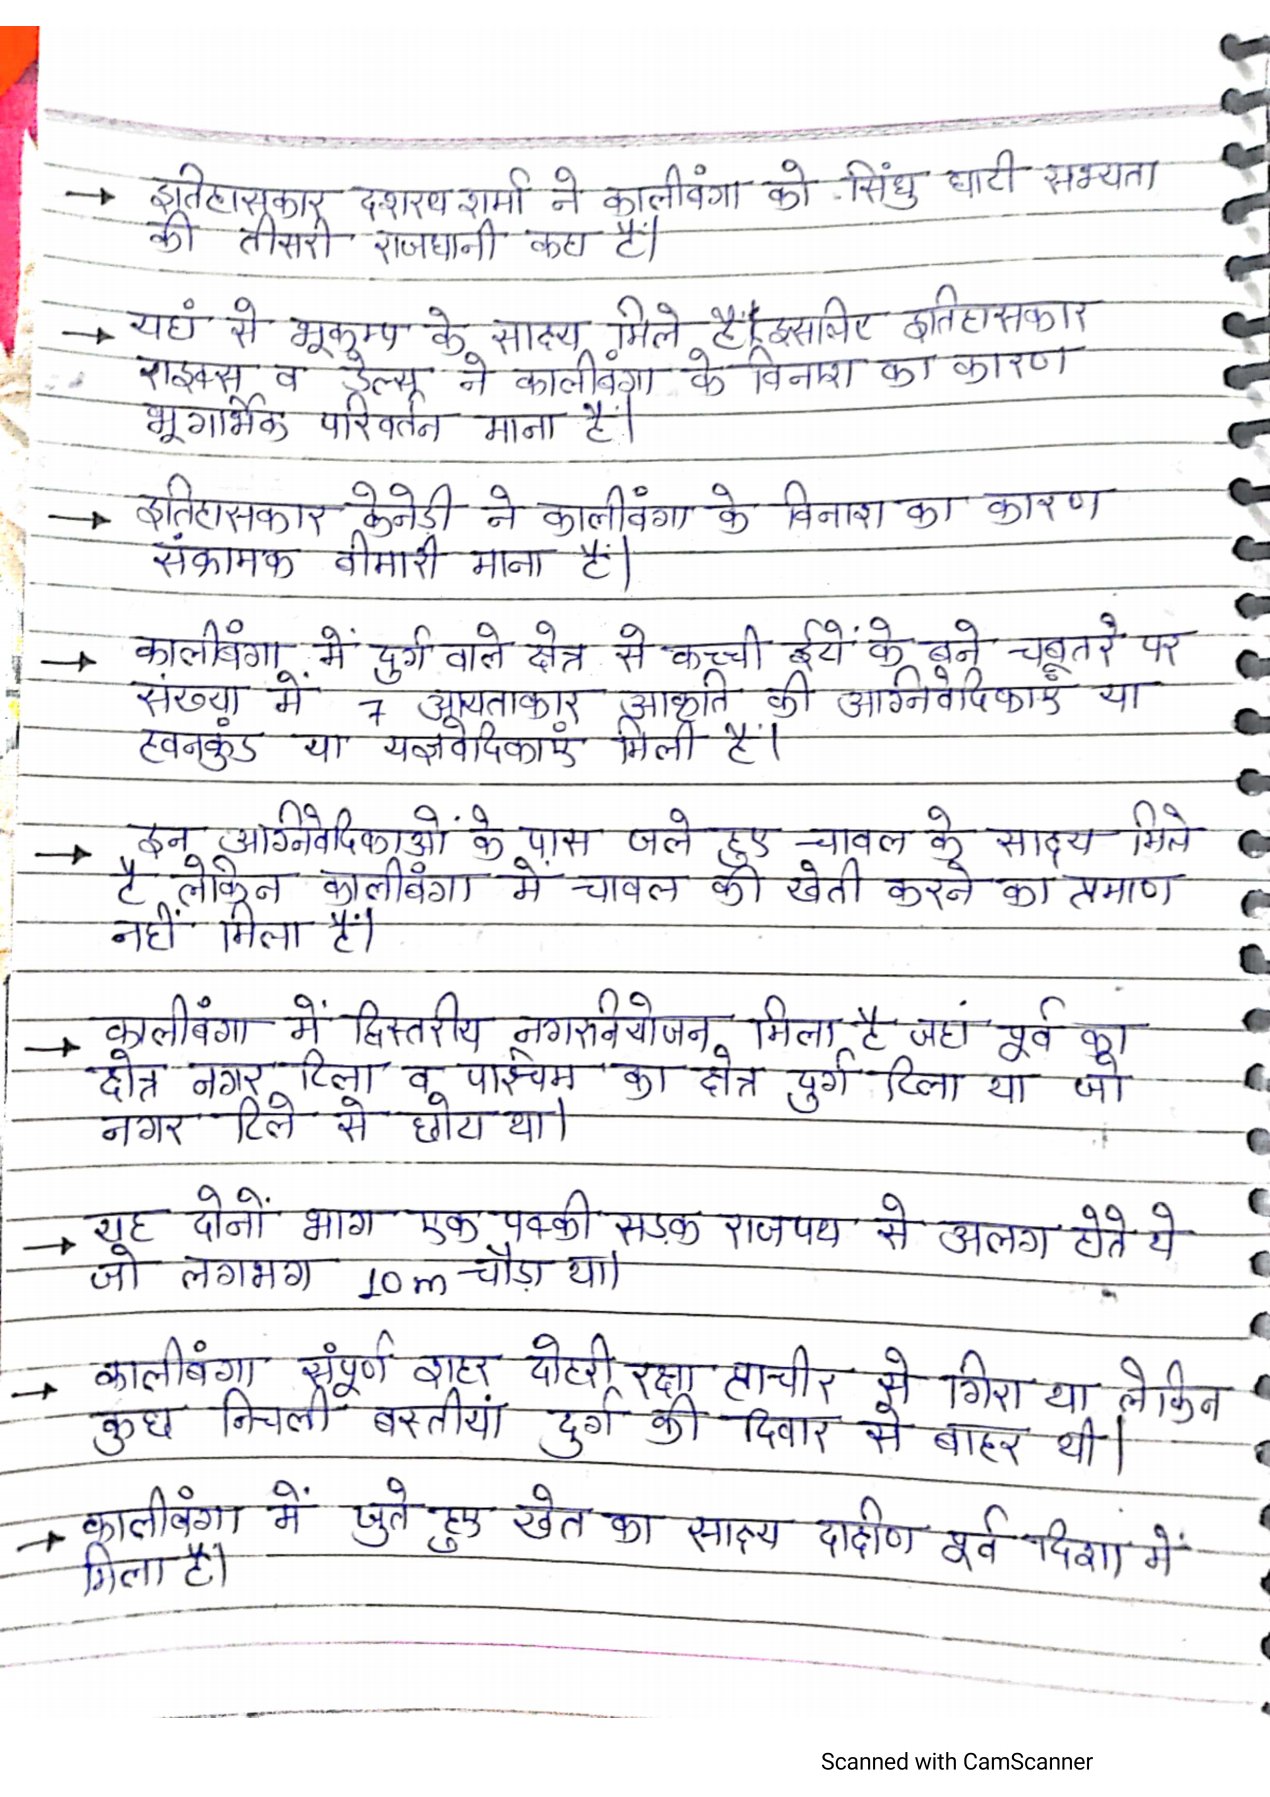 → इतिहासकार दशरथ शर्मा ने कालीबंगा को सिंधु घाटी सभ्यता
की तीसरी राजधानी कहा हैं।
→ यहां से भूकम्प के साक्ष्य मिले हैं। इसलिए इतिहासकार
राइक्स व डेल्स ने कालीबंगा के विनाश का कारण
भूगर्भिक परिवर्तन माना हैं।
→ इतिहासकार केनेडी ने कालीबंगा के विनाश का कारण
संक्रामक बीमारी माना हैं।
→ कालीबंगा में दुर्ग वाले क्षेत्र से कच्ची ईटों के बने चबूतरे पर
संख्या में 7 आयताकार आकृति की अग्निवेदिकाएं या
हवनकुंड या यज्ञवेदिकाएं मिली हैं।
→ इन अग्निवेदिकाओं के पास जले हुए चावल के साक्ष्य मिले
है लेकिन कालीबंगा में चावल की खेती करने का प्रमाण
नहीं मिला हैं।
→ कालीबंगा में द्विस्तरीय नगरनियोजन मिला है जहां पूर्व का
क्षेत्र नगर टिला व पश्चिम का क्षेत्र दुर्ग टिला था जो
नगर टिले से छोटा था।
→ यह दोनों भाग एक पक्की सड़क राजपथ से अलग होते थे
जो लगभग 10m चौड़ा था।
→ कालीबंगा संपूर्ण शहर दोहरी रक्षा प्राचीर से गिरा था लेकिन
कुछ निचली बस्तीयां दुर्ग की दिवार से बाहर थी।
→ कालीबंगा में जुते हुए खेत का साक्ष्य दक्षिण पूर्व दिशा में
मिला है।
Scanned with CamScanner